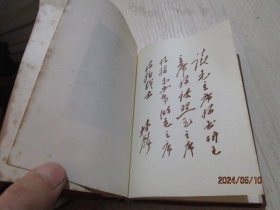 读毛主席的书听毛
主席的话按照毛主席
的指示办事做毛主席
的好战士
林彪
2024/05/10